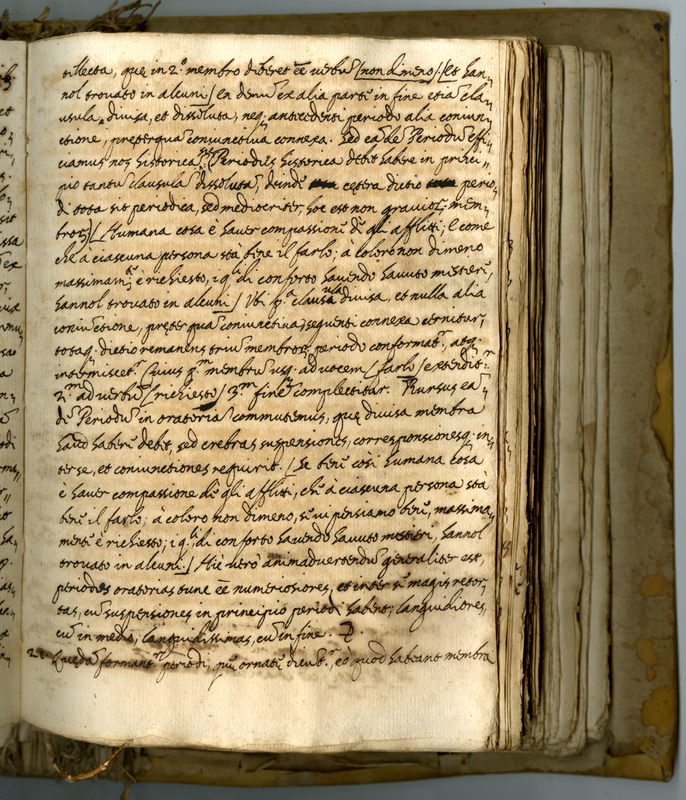 tellecta, que in 2.º membro diberet cē verbū [non dimeno]. [et han„
nol trovato in alcuni] en denuō ex alia parte in fine etiā clā„
usula divisa, et dissoluta, neq; antecedenti periodo alia coniun„
ctione, preterquā coniunctiva connexa. Sed eādē Periodū effi„
ciamus nos historica. Periodus historica debet habere in princi„
pio tantū clausulā dissolutā, deinde cętera dictio perio„
di tota sit periodica, sed mediocriter, hoc est non graviorē mem„
broꝝ [Humana cosa è haver compassione de gli afflitti; E come
che à ciascuna persona stà bene il farlo; à coloro non dimeno
massimam.te è richiesto, i q.li di conforto havendo havuto mistieri,
hannol trovato in alcuni] Ubi p.a clausula divisa, et nulla alia
coniūctione, pręterquā coniunctiva, sequenti connexa cernitur,
totaq; dictio remanens triū membroꝝ periodo conformat.r, atq;
intermiscet.r Cuius p.m membrū usq; ad vocem [farlo] extendit.r
2.m ad verbū [richiesto] 3.m finē complectitur. Rursus eā„
dē Periodū in oratoriā commutemus, quę divisa membra
haud habere debet, sed crebras suspensiones, corresponsionesq; in„
terse, et coniunctiones requirit. [Se bene così humana cosa
è haver compassione de gli afflitti, che à ciascuna persona stà
bene il farlo; à coloro non dimeno, se vi pensiamo bene, massima„
mente è richiesto; i q.li di conforto havendo havuto mistieri, hannol
trovato in alcuni.] Hic verò animadvertendū generaliter est,
periodos oratorias tunc cē numeriosiores, et inter se magis retor„
tas, cū suspensiones in principio periodi habent; languidiores,
cū in medio; languidissimas, cū in fine.
2. Quędā formant.r periodi, quę ornatę dicunt.r, eò quod habeant membra